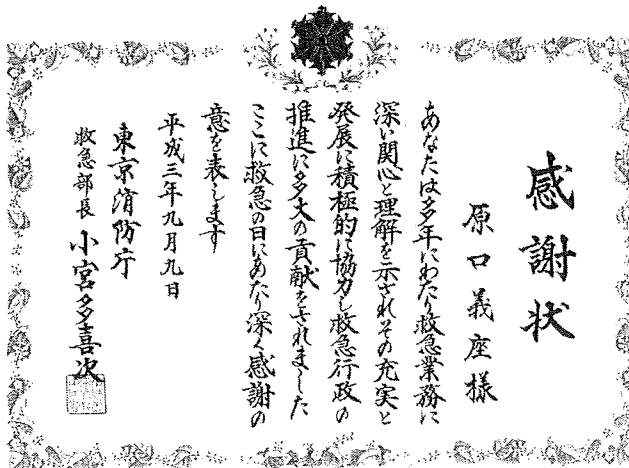 感謝状
原口義座様
あなたは多年にわたり救急業務に
深い関心と理解を示されその充実と
発展に積極的に協力し救急行政の
推進に多大の貢献をされました
ここに救急の日にあたり深く感謝の
意を表します
平成三年九月九日
東京消防庁
救急部長 小宮多喜次